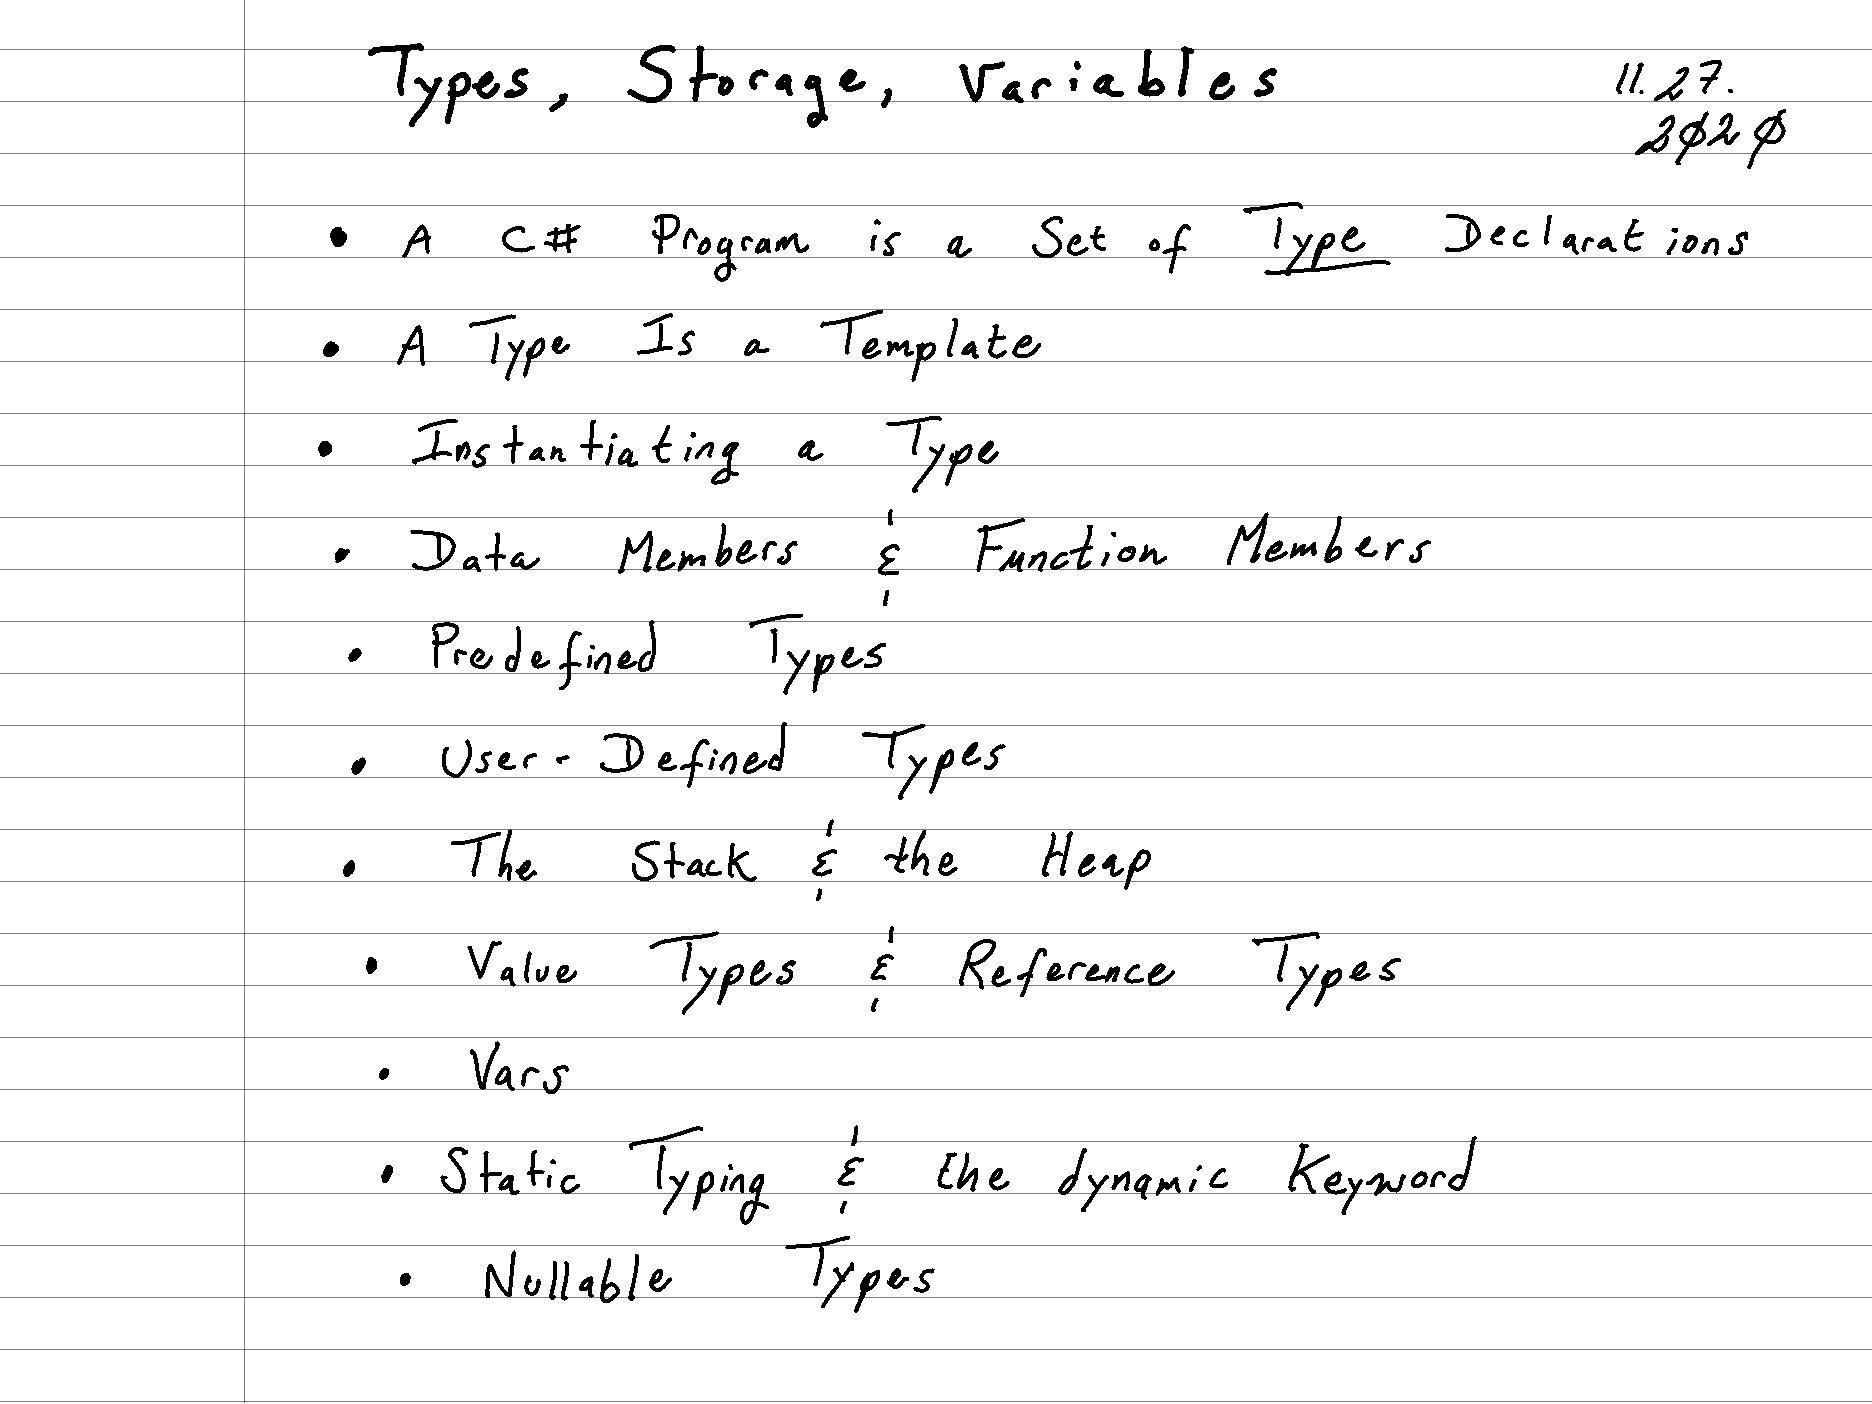 Types, Storage, Variables
11.27.
2020
• A C# Program is a Set of Type Declarations
• A Type Is a Template
• Instantiating a Type
• Data Members & Function Members
• Predefined Types
• User-Defined Types
• The Stack & the Heap
• Value Types & Reference Types
• Vars
• Static Typing & the dynamic Keyword
• Nullable Types